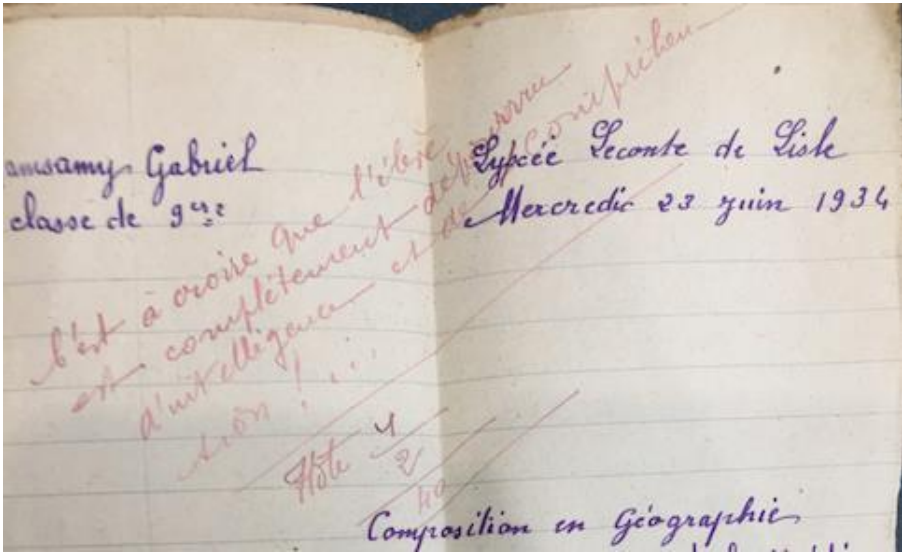 amsamy Gabriel
classe de 9ème
Lypcée Leconte de Lisle
Mercredi 23 juin 1934
C'est à croire que l'élève
est complètement dépourvu
d'intelligence et de compréhen-
sion !...
Note 1/2
40
Composition en Géographie